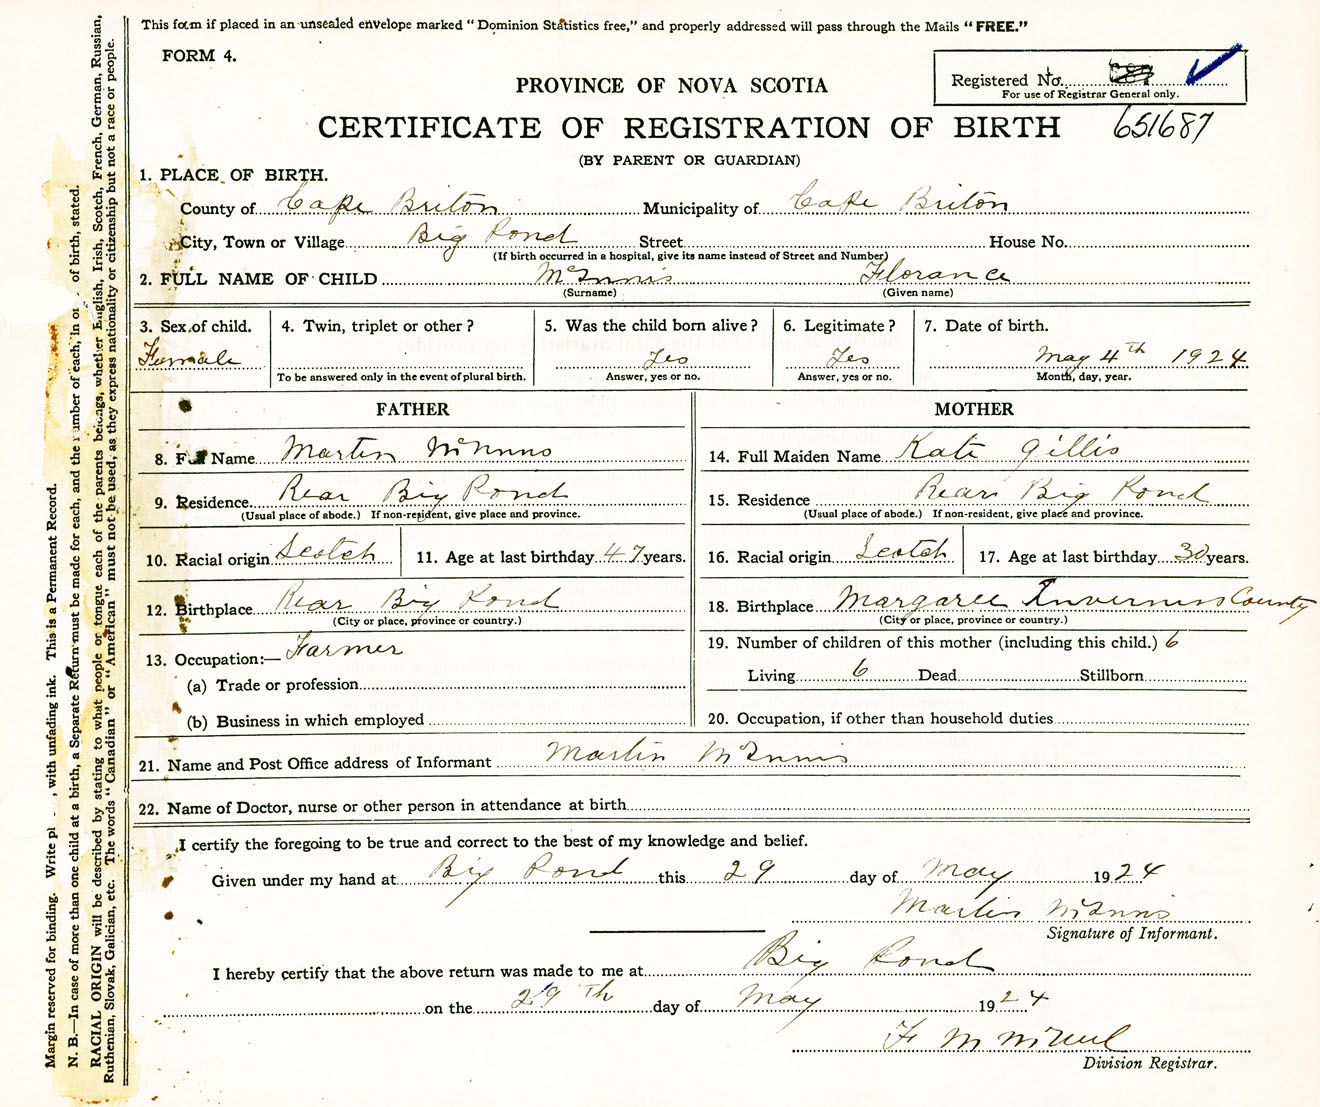 This form if placed in an unsealed envelope marked "Dominion Statistics free," and properly addressed will pass through the Mails "FREE."
FORM 4.
Registered No.
For use of Registrar General only.
PROVINCE OF NOVA SCOTIA
CERTIFICATE OF REGISTRATION OF BIRTH 651687
(BY PARENT OR GUARDIAN)
1. PLACE OF BIRTH.
County of Cape Briton Municipality of Cape Briton
City, Town or Village Big Pond Street House No.
(If birth occurred in a hospital, give its name instead of Street and Number)
2. FULL NAME OF CHILD McInnis Florance
(Surname) (Given name)
3. Sex of child. 4. Twin, triplet or other? 5. Was the child born alive? 6. Legitimate? 7. Date of birth.
Female Yes Yes May 4th 1924
To be answered only in the event of plural birth. Answer, yes or no. Answer, yes or no. Month, day, year.
FATHER MOTHER
8. Full Name Martin McInnis 14. Full Maiden Name Kate Gillis
9. Residence Rear Big Pond 15. Residence Rear Big Pond
(Usual place of abode.) If non-resident, give place and province. (Usual place of abode.) If non-resident, give place and province.
10. Racial origin Scotch 11. Age at last birthday 47 years. 16. Racial origin Scotch 17. Age at last birthday 30 years.
12. Birthplace Rear Big Pond 18. Birthplace Margaree Inverness County
(City or place, province or country.) (City or place, province or country.)
13. Occupation:— Farmer 19. Number of children of this mother (including this child.) 6
(a) Trade or profession Living 6 Dead Stillborn
(b) Business in which employed 20. Occupation, if other than household duties
21. Name and Post Office address of Informant Martin McInnis
22. Name of Doctor, nurse or other person in attendance at birth
I certify the foregoing to be true and correct to the best of my knowledge and belief.
Given under my hand at Big Pond this 29 day of May 1924
Martin McInnis
Signature of Informant.
I hereby certify that the above return was made to me at Big Pond
on the 29th day of May 1924
F M McNeil
Division Registrar.
Margin reserved for binding. Write pl , with unfading ink. This is a Permanent Record.
N. B.—In case of more than one child at a birth, a Separate Return must be made for each, and the number of each, in or of birth, stated.
RACIAL ORIGIN will be described by stating to what people or tongue each of the parents belongs, whether English, Irish, Scotch, French, German, Russian,
Ruthenian, Slovak, Galician, etc. The words "Canadian" or "American" must not be used, as they express nationality or citizenship but not a race or people.